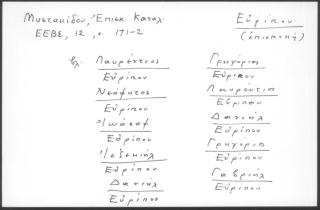 Μυστακίδου, Ἐπισκ. Κατάλ.
ΕΕΒΣ, 12, σ. 171-2
Εὐρίπου
(ἐπισκοπή)
βλ. Λαυρέντιος
Εὐρίπου
Νεόφυτος
Εὐρίπου
Ἰωάσαφ
Εὐρίπου
Ἰεζεκιήλ
Εὐρίπου
Δανιήλ
Εὐρίπου
Γρηγόριος
Εὐρίπου
Λαυρέντιος
Εὐρίπου
Δανιήλ
Εὐρίπου
Γρηγόριος
Εὐρίπου
Γαβριήλ
Εὐρίπου